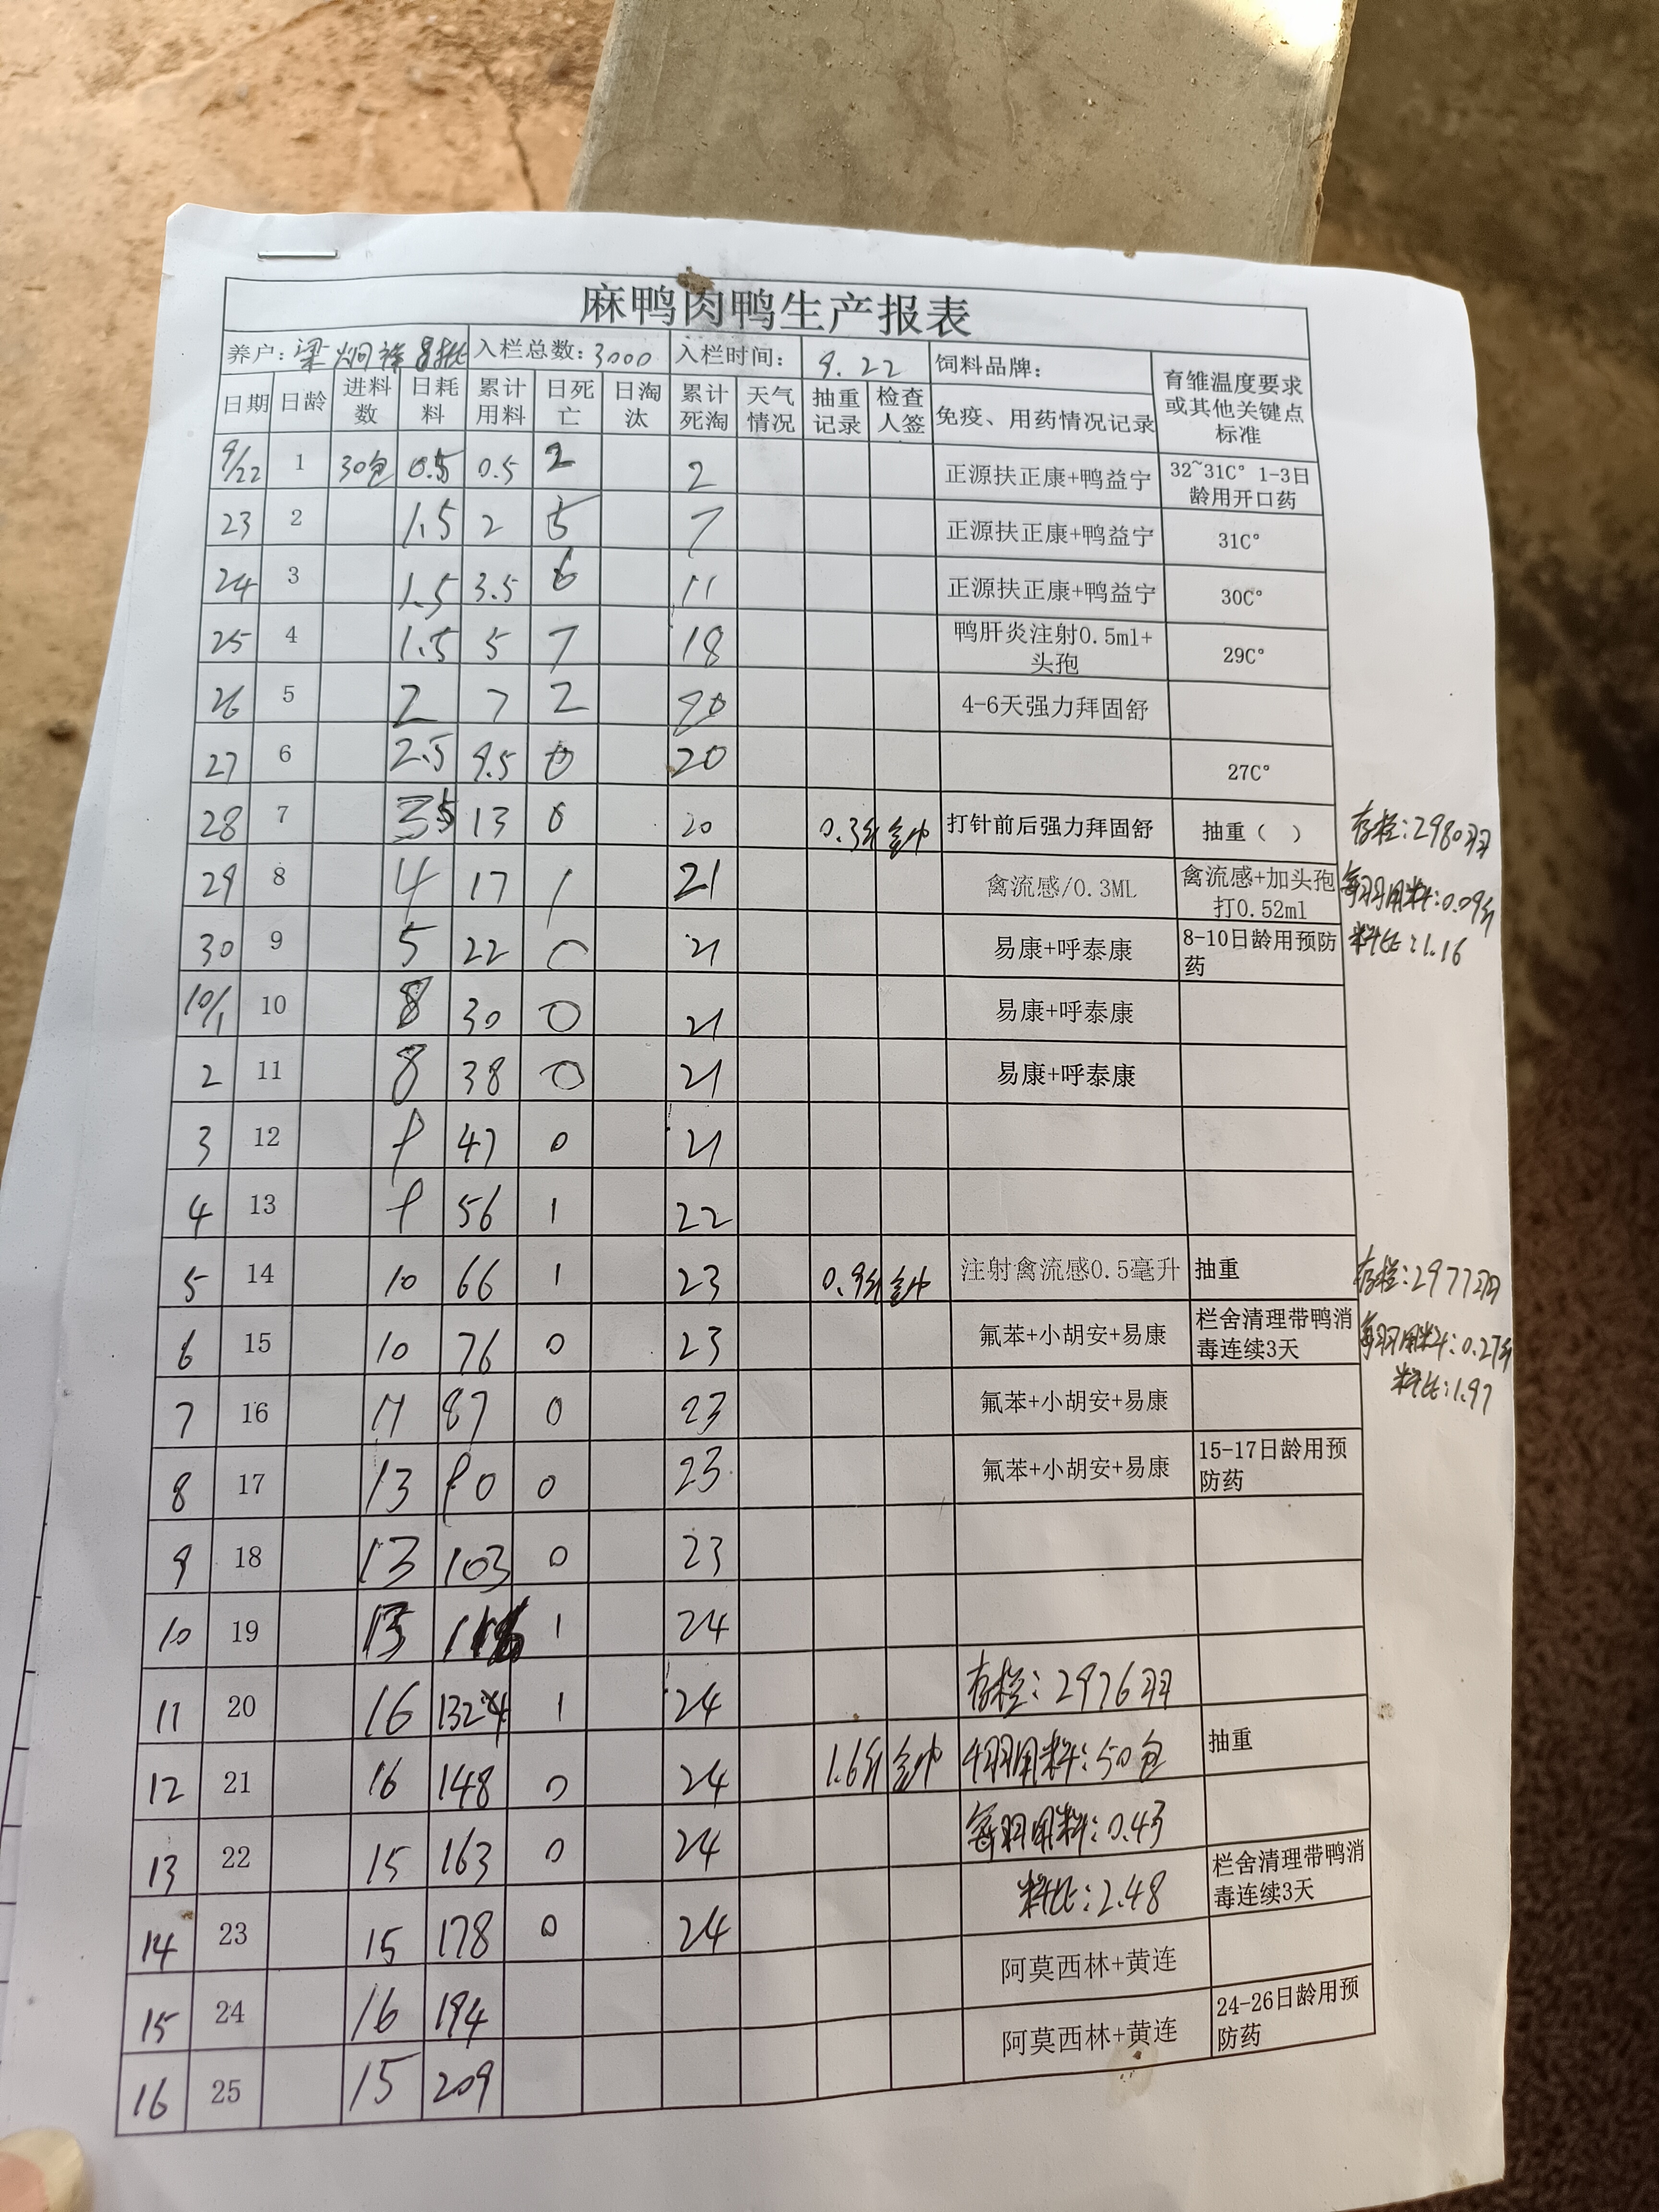 麻鸭肉鸭生产报表
养户: 梁炯 8批 入栏总数: 3000 入栏时间: 9.22 饲料品牌: 育雏温度要求或其他关键点标准
日期 日龄 进料数 日耗料 累计用料 日死亡 日淘汰 累计死淘 天气情况 抽重记录 检查人签 免疫、用药情况记录
9/22 1 30包 0.5 0.5 2 2 正源扶正康+鸭益宁 32~31C° 1-3日龄用开口药
23 2 1.5 2 5 7 正源扶正康+鸭益宁 31C°
24 3 1.5 3.5 6 11 正源扶正康+鸭益宁 30C°
25 4 1.5 5 7 18 鸭肝炎注射0.5ml+头孢 29C°
26 5 2 7 2 20 4-6天强力拜固舒
27 6 2.5 9.5 0 20 27C°
28 7 3.5 13 0 20 0.3斤 打针前后强力拜固舒 抽重（ ） 存栏:2980羽
29 8 4 17 1 21 禽流感/0.3ML 禽流感+加头孢打0.52ml 每羽用料:0.09斤
30 9 5 22 0 21 易康+呼泰康 8-10日龄用预防药 料比:1.16
10/1 10 8 30 0 21 易康+呼泰康
2 11 8 38 0 21 易康+呼泰康
3 12 9 47 0 21
4 13 9 56 1 22
5 14 10 66 1 23 0.9斤 注射禽流感0.5毫升 抽重 存栏:2977羽
6 15 10 76 0 23 氟苯+小胡安+易康 栏舍清理带鸭消毒连续3天 每羽用料:0.27斤
7 16 11 87 0 23 氟苯+小胡安+易康 料比:1.97
8 17 13 90 0 23 氟苯+小胡安+易康 15-17日龄用预防药
9 18 13 103 0 23
10 19 1 24
11 20 16 132 1 24 存栏:2976羽
12 21 16 148 0 24 1.6斤 千羽用料:50包 抽重
13 22 15 163 0 24 每羽用料:0.43
14 23 15 178 0 24 料比:2.48 栏舍清理带鸭消毒连续3天
15 24 16 194 阿莫西林+黄连
16 25 15 209 阿莫西林+黄连 24-26日龄用预防药